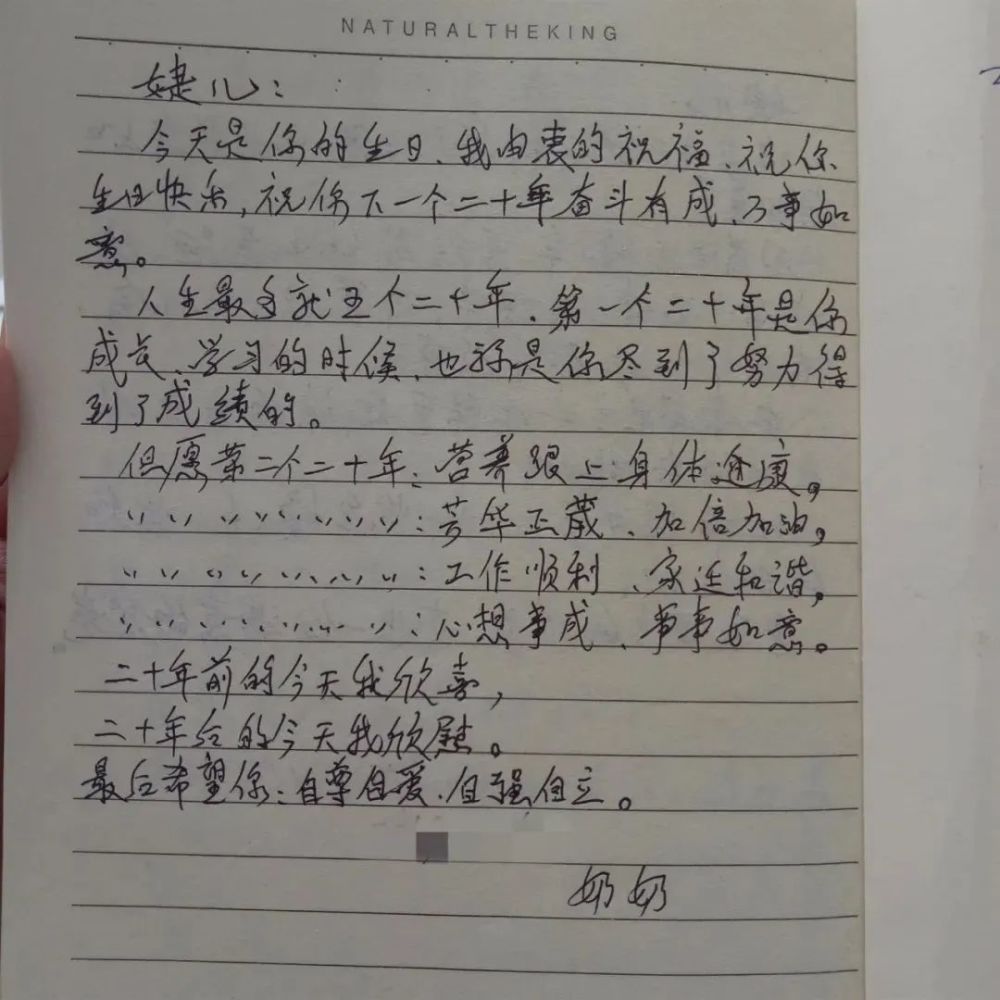 NATURALTHEKING
婕儿:
今天是你的生日、我由衷的祝福、祝你
生日快乐,祝你下一个二十年奋斗有成、万事如
意。
人生最多就五个二十年、第一个二十年是你
成长、学习的时候、也称是你尽到了努力得
到了成绩的。
但愿第二个二十年:营养跟上身体适康。
〃〃〃〃〃〃〃:芳华正葳、加倍加油,
〃〃〃〃〃〃〃:工作顺利、家迁和谐,
〃〃〃〃〃〃〃:心想事成、事事如意。
二十年前的今天我欣喜,
二十年后的今天我欣慰。
最后希望你:自尊自爱、自强自立。
奶奶